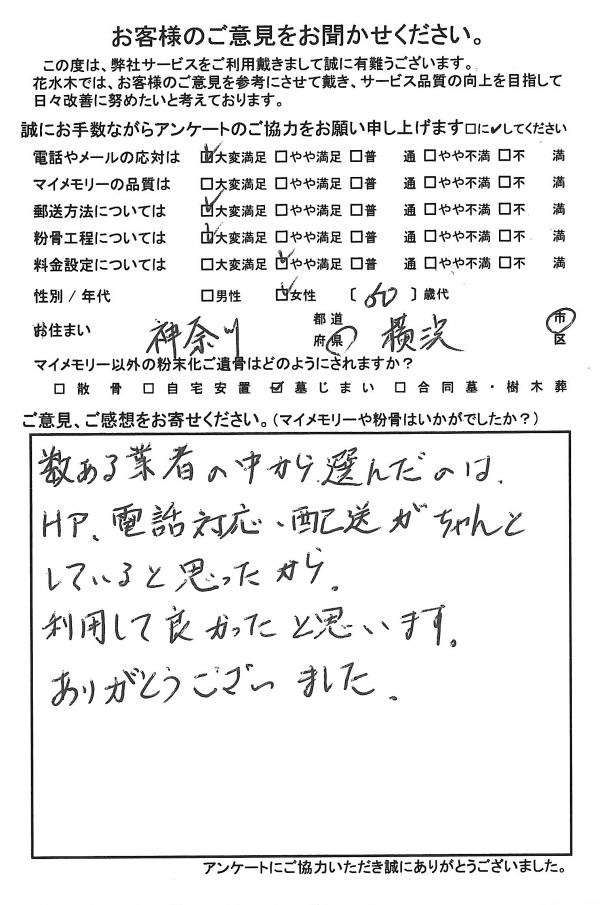 お客様のご意見をお聞かせください。
この度は、弊社サービスをご利用戴きまして誠に有難うございます。
花水木では、お客様のご意見を参考にさせて戴き、サービス品質の向上を目指して
日々改善に努めたいと考えております。
誠にお手数ながらアンケートのご協力をお願い申し上げます□に✔してください
電話やメールの応対は ☑大変満足 □やや満足 □普 通 □やや不満 □不 満
マイメモリーの品質は □大変満足 □やや満足 □普 通 □やや不満 □不 満
郵送方法については ☑大変満足 □やや満足 □普 通 □やや不満 □不 満
粉骨工程については ☑大変満足 □やや満足 □普 通 □やや不満 □不 満
料金設定については □大変満足 ☑やや満足 □普 通 □やや不満 □不 満
性別 / 年代 □男性 ☑女性 〔 60 〕歳代
お住まい 神奈川 都道府県 横浜 市区
マイメモリー以外の粉末化ご遺骨はどのようにされますか?
□散骨 □自宅安置 ☑墓じまい □合同墓・樹木葬
ご意見、ご感想をお寄せください。(マイメモリーや粉骨はいかがでしたか?)
数ある業者の中から選んだのは、
HP、電話対応、配送がちゃんと
していると思ったから。
利用して良かったと思います。
ありがとうございました。
アンケートにご協力いただき誠にありがとうございました。